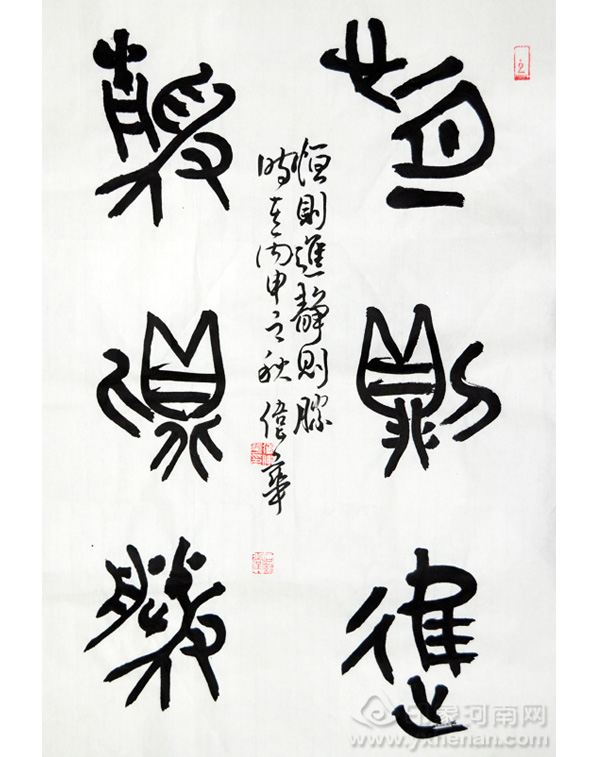 恒則進
靜則勝
恒則進靜則勝
時在丙申之秋 偉華
印象河南网
www.yxhenan.com